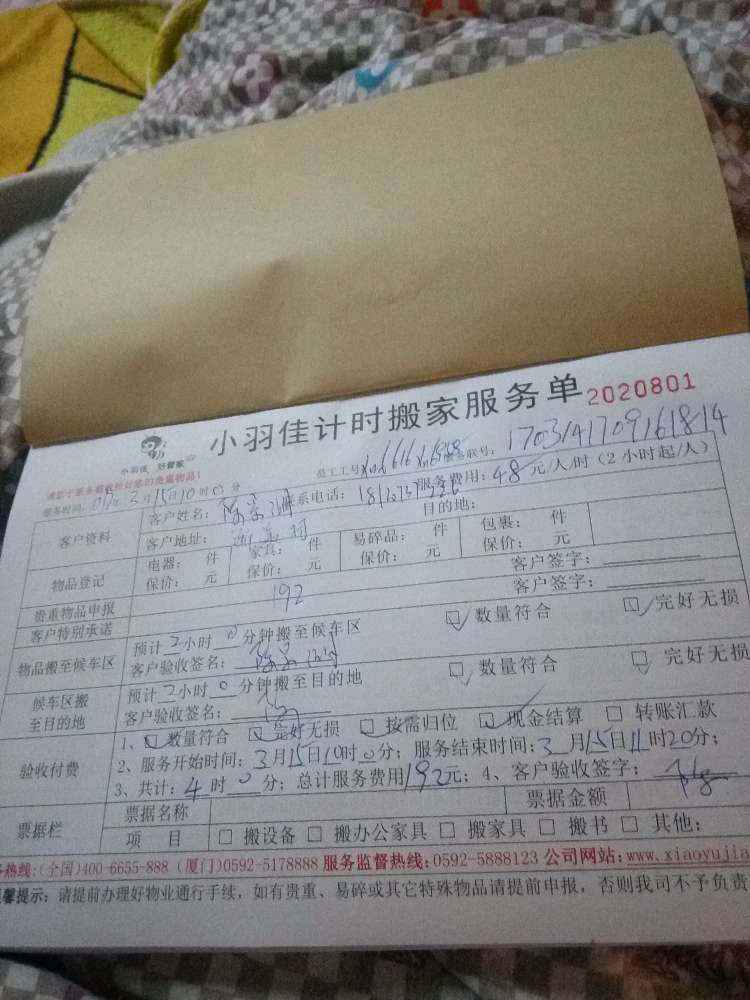 小羽佳计时搬家服务单 2020801
小羽佳 好管家
员工工号: 服务联号: 1703141709161814
服务时间: 年3月15日10时0分
客户资料 客户姓名: 联系电话: 服务费用: 48元/人/时 (2小时起/人)
客户地址: 目的地:
物品登记 电器: 件 家具: 件 易碎品: 件 包裹: 件
保价: 元 保价: 元 保价: 元 保价: 元
贵重物品申报 客户签字:
客户特别承诺 192 客户签字:
物品搬至候车区 预计2小时0分钟搬至候车区 数量符合 完好无损
客户验收签名:
候车区搬至目的地 预计2小时0分钟搬至目的地 数量符合 完好无损
客户验收签名:
验收付费 1、数量符合 完好无损 按需归位 现金结算 转账汇款
2、服务开始时间: 3月15日10时0分; 服务结束时间: 3月15日11时20分;
3、共计: 4时0分; 总计服务费用192元; 4、客户验收签字:
票据栏 票据名称 票据金额
项 目 搬设备 搬办公家具 搬家具 搬书 其他:
务热线:(全国)400-6655-888 (厦门)0592-5178888 服务监督热线:0592-5888123 公司网站:www.xiaoyujia
馨提示: 请提前办理好物业通行手续, 如有贵重、易碎或其它特殊物品请提前申报, 否则我司不予负责